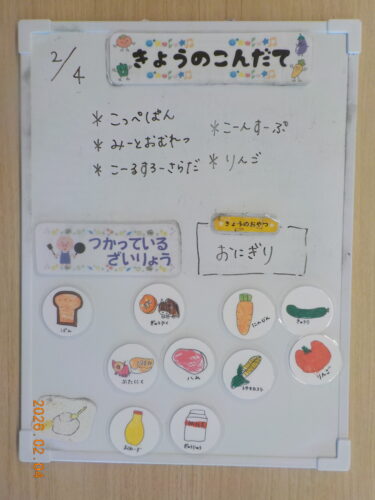 きょうのこんだて
2/4
＊こっぺぱん
＊みーとおむれつ
＊こーるすろーさらだ
＊こーんすーぷ
＊りんご
きょうのおやつ
おにぎり
つかっている
ざいりょう
ぱん
にんじん
きゅうり
ぶたにく
ハム
りんご
2026.02.04